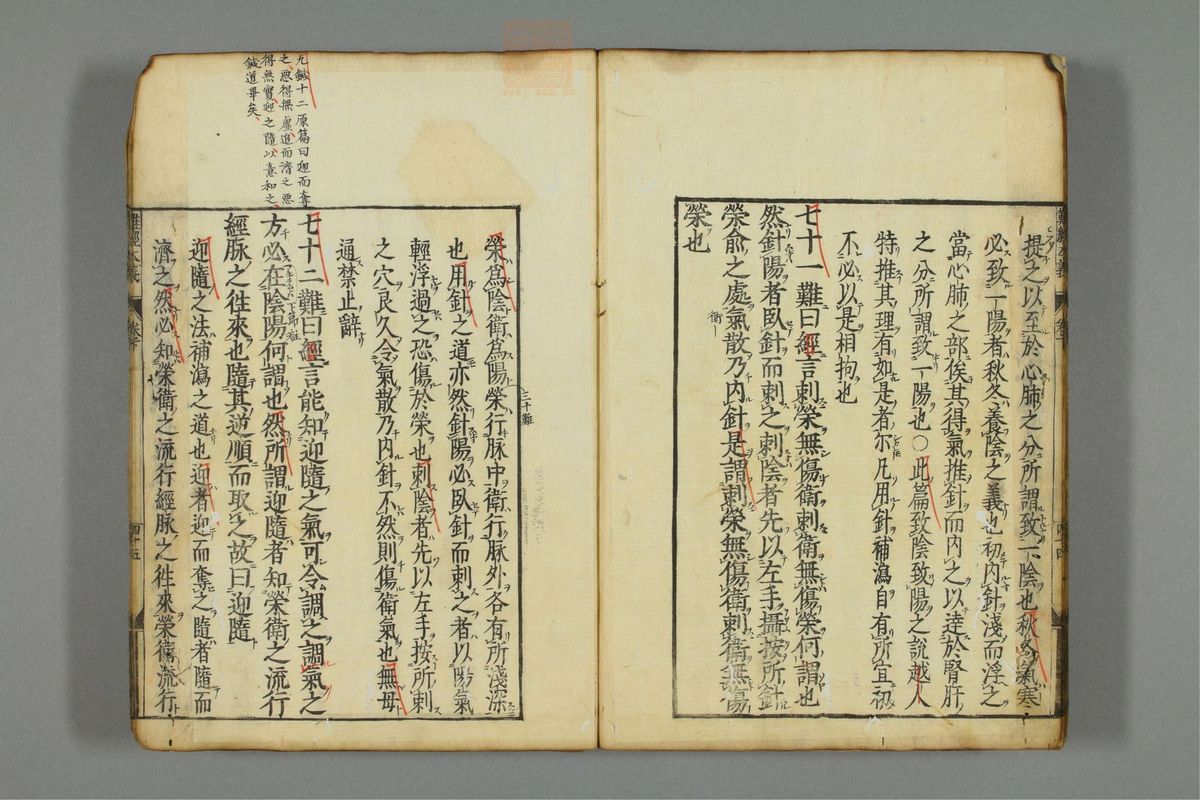 提之以至於心肺之分所謂致一陰也秋冬氣寒
必致一陽者秋冬養陰之義也初内針淺而浮之
當心肺之部俟其得氣推針而内之以達於腎肝
之分所謂致一陽也○此篇致陰致陽之説越人
特推其理有如是者尔凡用針補瀉自有所宜初
不必以是相拘也
七十一難曰經言刺榮無傷衛刺衛無傷榮何謂也
然針陽者臥針而刺之刺陰者先以左手攝按所針
榮俞之處氣散乃内針是謂刺榮無傷衛刺衛無傷
榮也
九鍼十二原篇曰迎而奪
之惡得無虛追而濟之惡
得無實迎之隨之以意和之
鍼道畢矣
榮爲陰衛爲陽榮行脉中衛行脉外各有所淺深
三十難
也用針之道亦然針陽必臥針而刺之者以陽氣
輕浮過之恐傷於榮也刺陰者先以左手按所刺
之穴良久令氣散乃内針不然則傷衛氣也無毋
通禁止辭
七十二難曰經言能知迎隨之氣可令調之調氣之
方必在陰陽何謂也然所謂迎隨者知榮衛之流行
經脉之徃來也隨其逆順而取之故曰迎隨
迎隨之法補瀉之道也迎者迎而奪之隨者隨而
濟之然必知榮衛之流行經脉之徃來榮衛流行
難經本義
卷下
四十五